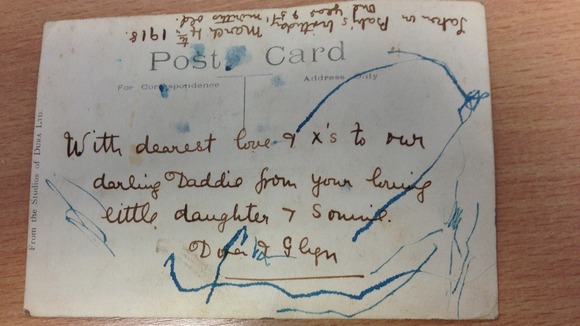 Taken on Baby's birthday March 4th 1918.
year & months old.
Post Card
For Correspondence
Address Only
With dearest love & x's to our
darling Daddie from your loving
little daughter & Sonnie.
Dora & Glyn
From the Studios of Dura Ltd